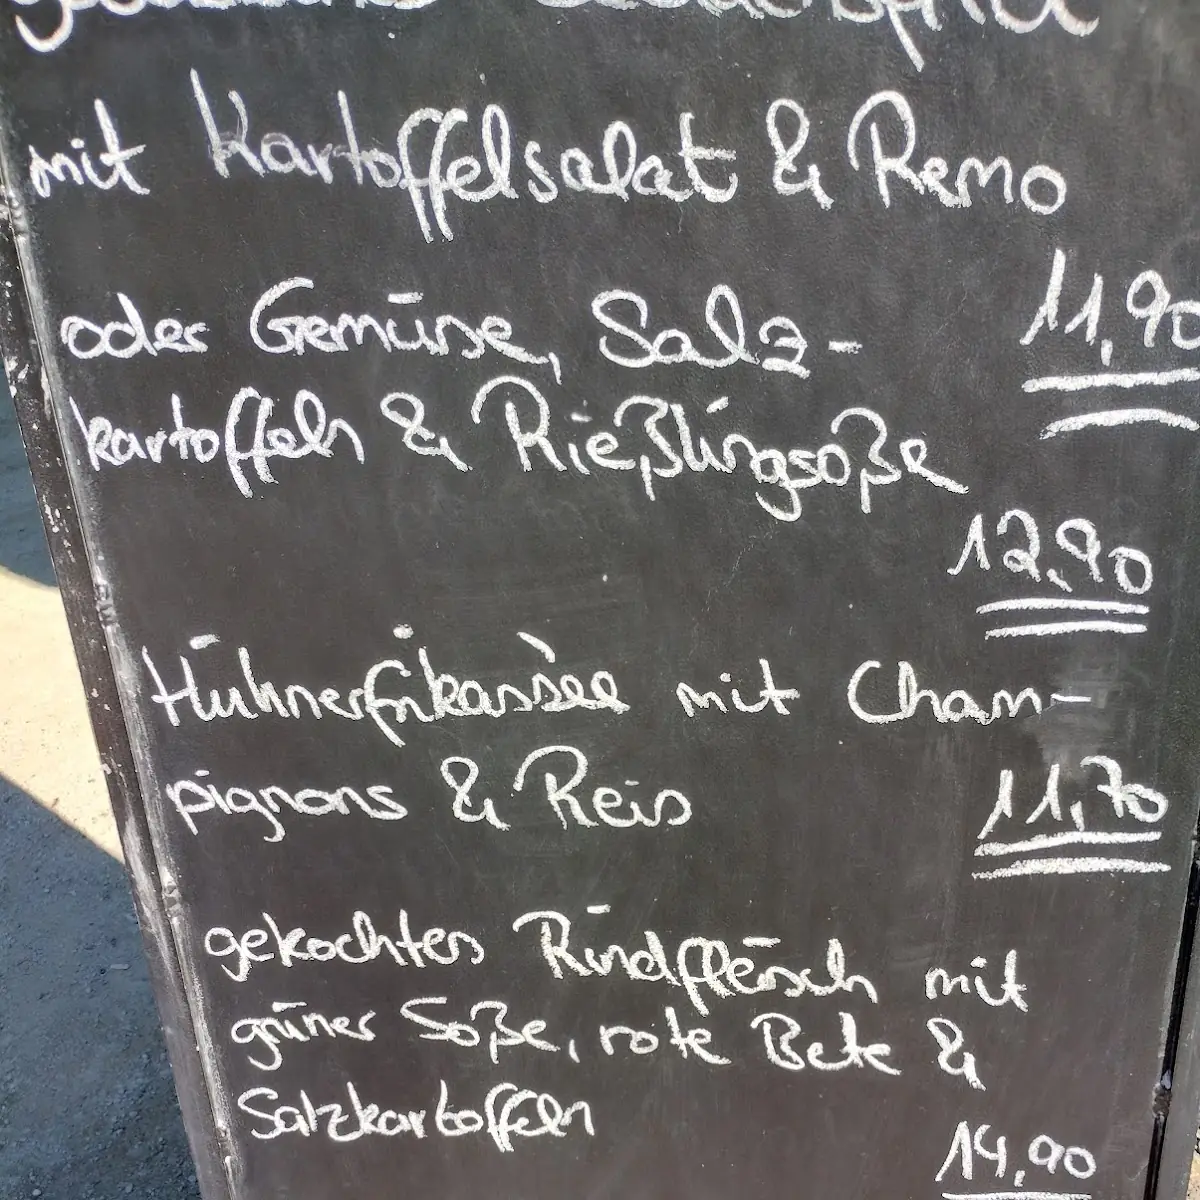 mit Kartoffelsalat & Remo
11,90
oder Gemüse, Salz-
kartoffeln & Rießlingsoße
12,90
Hühnerfrikassee mit Cham-
pignons & Reis
11,70
gekochtes Rindfleisch mit
grüner Soße, rote Bete &
Salzkartoffeln
14,90